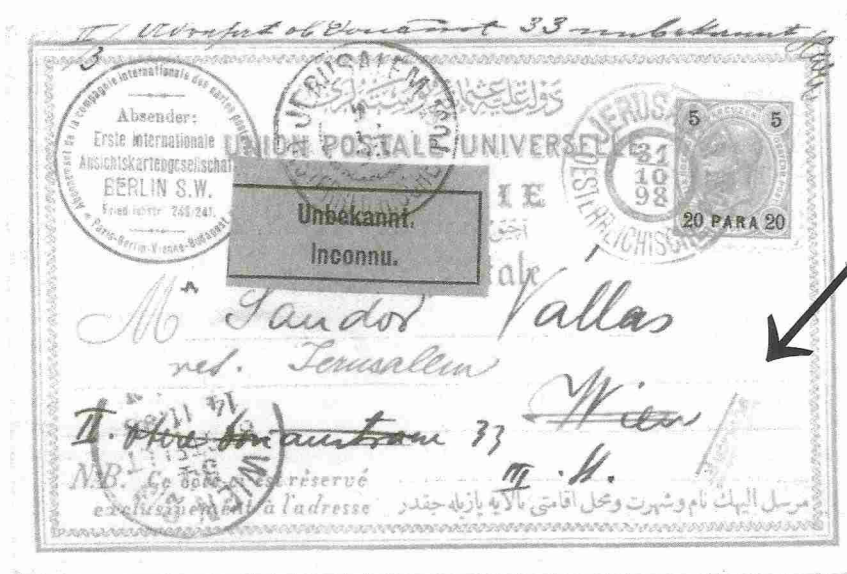 II/ ob Donaustr 33 unbekannt
Abonnement de la compagnie internationale des cartes postales
Absender:
Erste internationale
Ansichtskartengesellschaft
BERLIN S.W.
Paris-Berlin-Vienne-Budapest
JERUSALEM
دولت عليۀ عثمانيه پوسته لرى
UNION POSTALE UNIVERSELLE
JERUSA
31
10
98
OESTERREICHISCHE
5 5
20 PARA 20
IE
Unbekannt.
Inconnu.
ale
Mr Sandor Vallas
ret. Jerusallem
Wien
II. Obere Donaustrasse 33
III. St.
WIEN
14 11
N.B. Ce côté est réservé
exclusivement à l'adresse
مرسل اليهك نام و شهرت و محل اقامتى بالايه يازيله جقدر